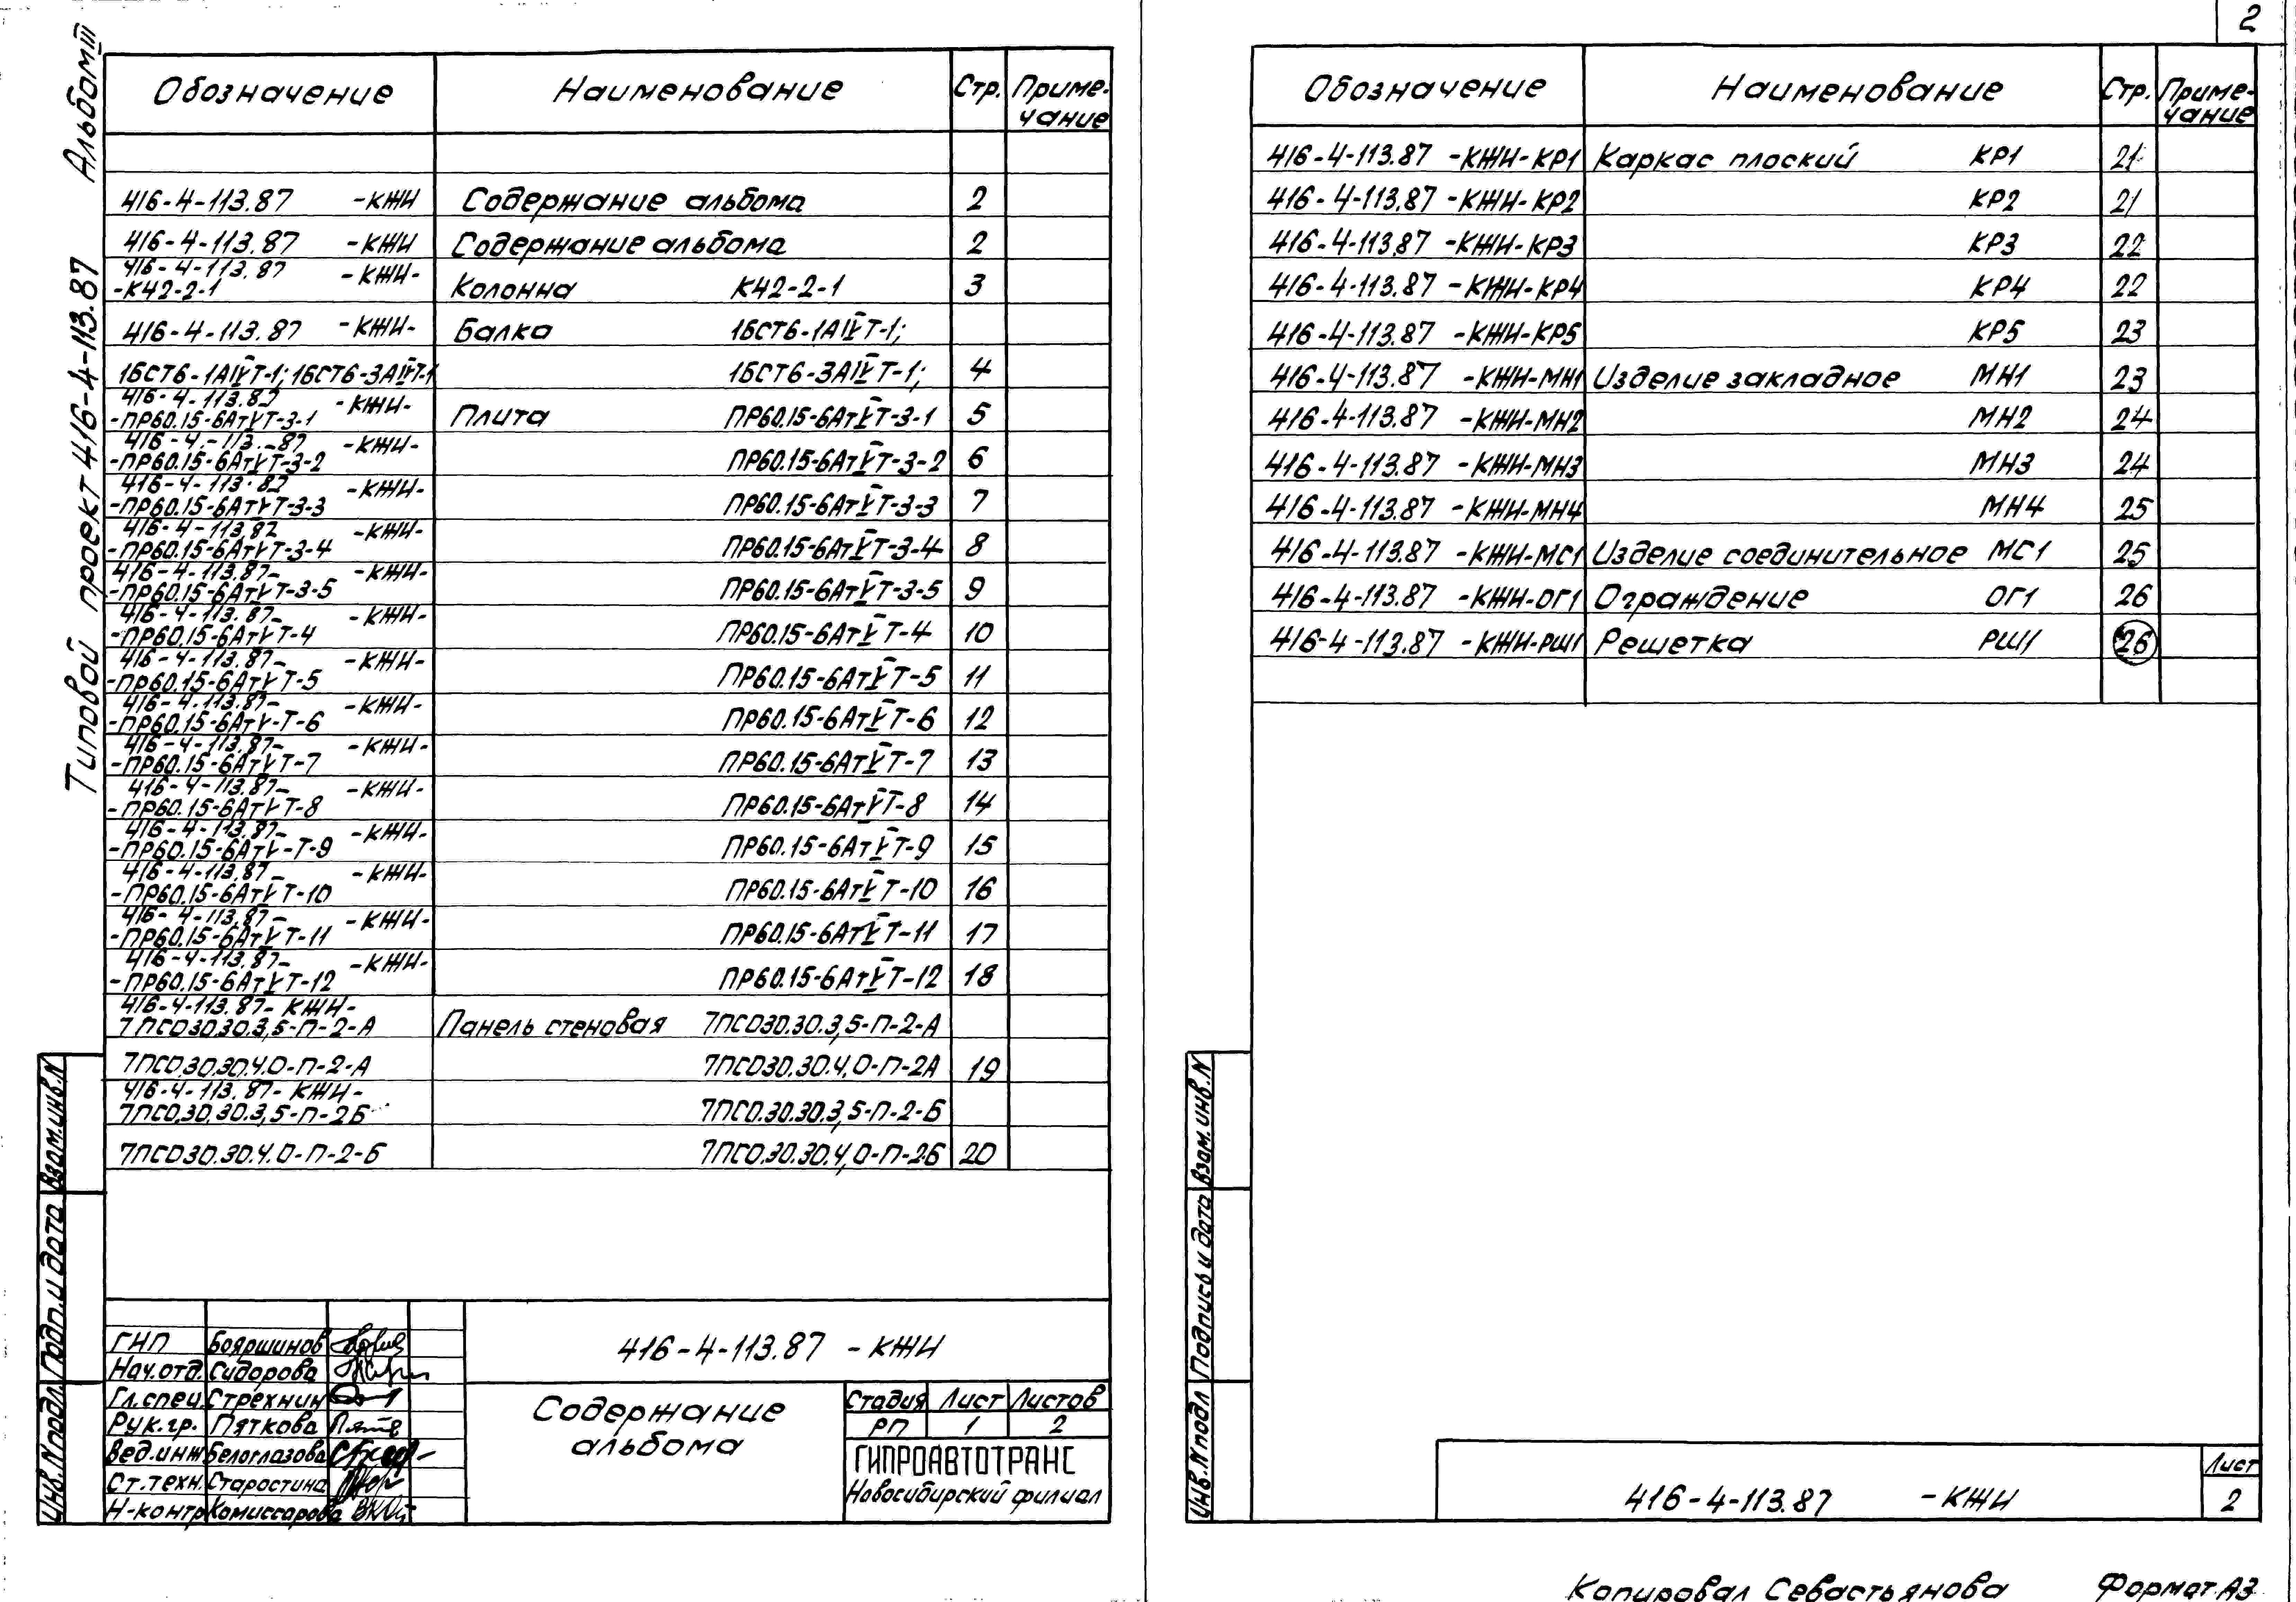 2
Типовой проект 416-4-113.87 Альбом III
Обозначение Наименование Стр. Приме-
чание
416-4-113.87 -КЖИ Содержание альбома 2
416-4-113.87 -КЖИ Содержание альбома 2
416-4-113.87 -КЖИ-
-К42-2-1 Колонна К42-2-1 3
416-4-113.87 -КЖИ- Балка 1БСТ6-1АIVТ-1;
1БСТ6-1АIVТ-1; 1БСТ6-3АIVТ-1 1БСТ6-3АIVТ-1; 4
416-4-113.87 -КЖИ-
-ПР60.15-6АтVТ-3-1 Плита ПР60.15-6АтVТ-3-1 5
416-4-113.-87 -КЖИ-
-ПР60.15-6АтVТ-3-2 ПР60.15-6АтVТ-3-2 6
416-4-113.87 -КЖИ-
-ПР60.15-6АтVТ-3-3 ПР60.15-6АтVТ-3-3 7
416-4-113.87 -КЖИ-
-ПР60.15-6АтVТ-3-4 ПР60.15-6АтVТ-3-4 8
416-4-113.87- -КЖИ-
-ПР60.15-6АтVТ-3-5 ПР60.15-6АтVТ-3-5 9
416-4-113.87- -КЖИ-
-ПР60.15-6АтVТ-4 ПР60.15-6АтVТ-4 10
416-4-113.87- -КЖИ-
-ПР60.15-6АтVТ-5 ПР60.15-6АтVТ-5 11
416-4-113.87- -КЖИ-
-ПР60.15-6АтV-Т-6 ПР60.15-6АтVТ-6 12
416-4-113.87- -КЖИ-
-ПР60.15-6АтVТ-7 ПР60.15-6АтVТ-7 13
416-4-113.87- -КЖИ-
-ПР60.15-6АтVТ-8 ПР60.15-6АтVТ-8 14
416-4-113.87- -КЖИ-
-ПР60.15-6АтV-Т-9 ПР60.15-6АтVТ-9 15
416-4-113.87- -КЖИ-
-ПР60.15-6АтVТ-10 ПР60.15-6АтVТ-10 16
416-4-113.87- -КЖИ-
-ПР60.15-6АтVТ-11 ПР60.15-6АтVТ-11 17
416-4-113.87- -КЖИ-
-ПР60.15-6АтVТ-12 ПР60.15-6АтVТ-12 18
416-4-113.87-КЖИ-
7ПСО30.30.3,5-П-2-А Панель стеновая 7ПСО30.30.3,5-П-2-А
7ПСО.30.30.4.0-П-2-А 7ПСО30.30.4,0-П-2А 19
416-4-113.87-КЖИ-
7ПСО.30.30.3,5-П-2Б 7ПСО.30.30.3,5-П-2-Б
7ПСО30.30.4.0-П-2-Б 7ПСО.30.30.4,0-П-2Б 20
Взам.инв.N
Подп.и дата
Инв.N подл.
ГИП Бояршинов
Нач.отд. Сидорова
Гл.спец. Стрехнин
Рук.гр. Пяткова
Вед.инж Белоглазова
Ст.техн. Старостина
Н-контр Комиссарова
416-4-113.87 -КЖИ
Содержание
альбома
Стадия Лист Листов
РП 1 2
ГИПРОАВТОТРАНС
Новосибирский филиал
Обозначение Наименование Стр. Приме-
чание
416-4-113.87 -КЖИ-КР1 Каркас плоский КР1 21
416-4-113.87 -КЖИ-КР2 КР2 21
416-4-113.87 -КЖИ-КР3 КР3 22
416-4-113.87 -КЖИ-КР4 КР4 22
416-4-113.87 -КЖИ-КР5 КР5 23
416-4-113.87 -КЖИ-МН1 Изделие закладное МН1 23
416-4-113.87 -КЖИ-МН2 МН2 24
416-4-113.87 -КЖИ-МН3 МН3 24
416-4-113.87 -КЖИ-МН4 МН4 25
416-4-113.87 -КЖИ-МС1 Изделие соединительное МС1 25
416-4-113.87 -КЖИ-ОГ1 Ограждение ОГ1 26
416-4-113.87 -КЖИ-РШ1 Решетка РШ1 26
Взам.инв.N
Подпись и дата
Инв.N подл
416-4-113.87 -КЖИ
Лист
2
Копировал Севастьянова Формат А3